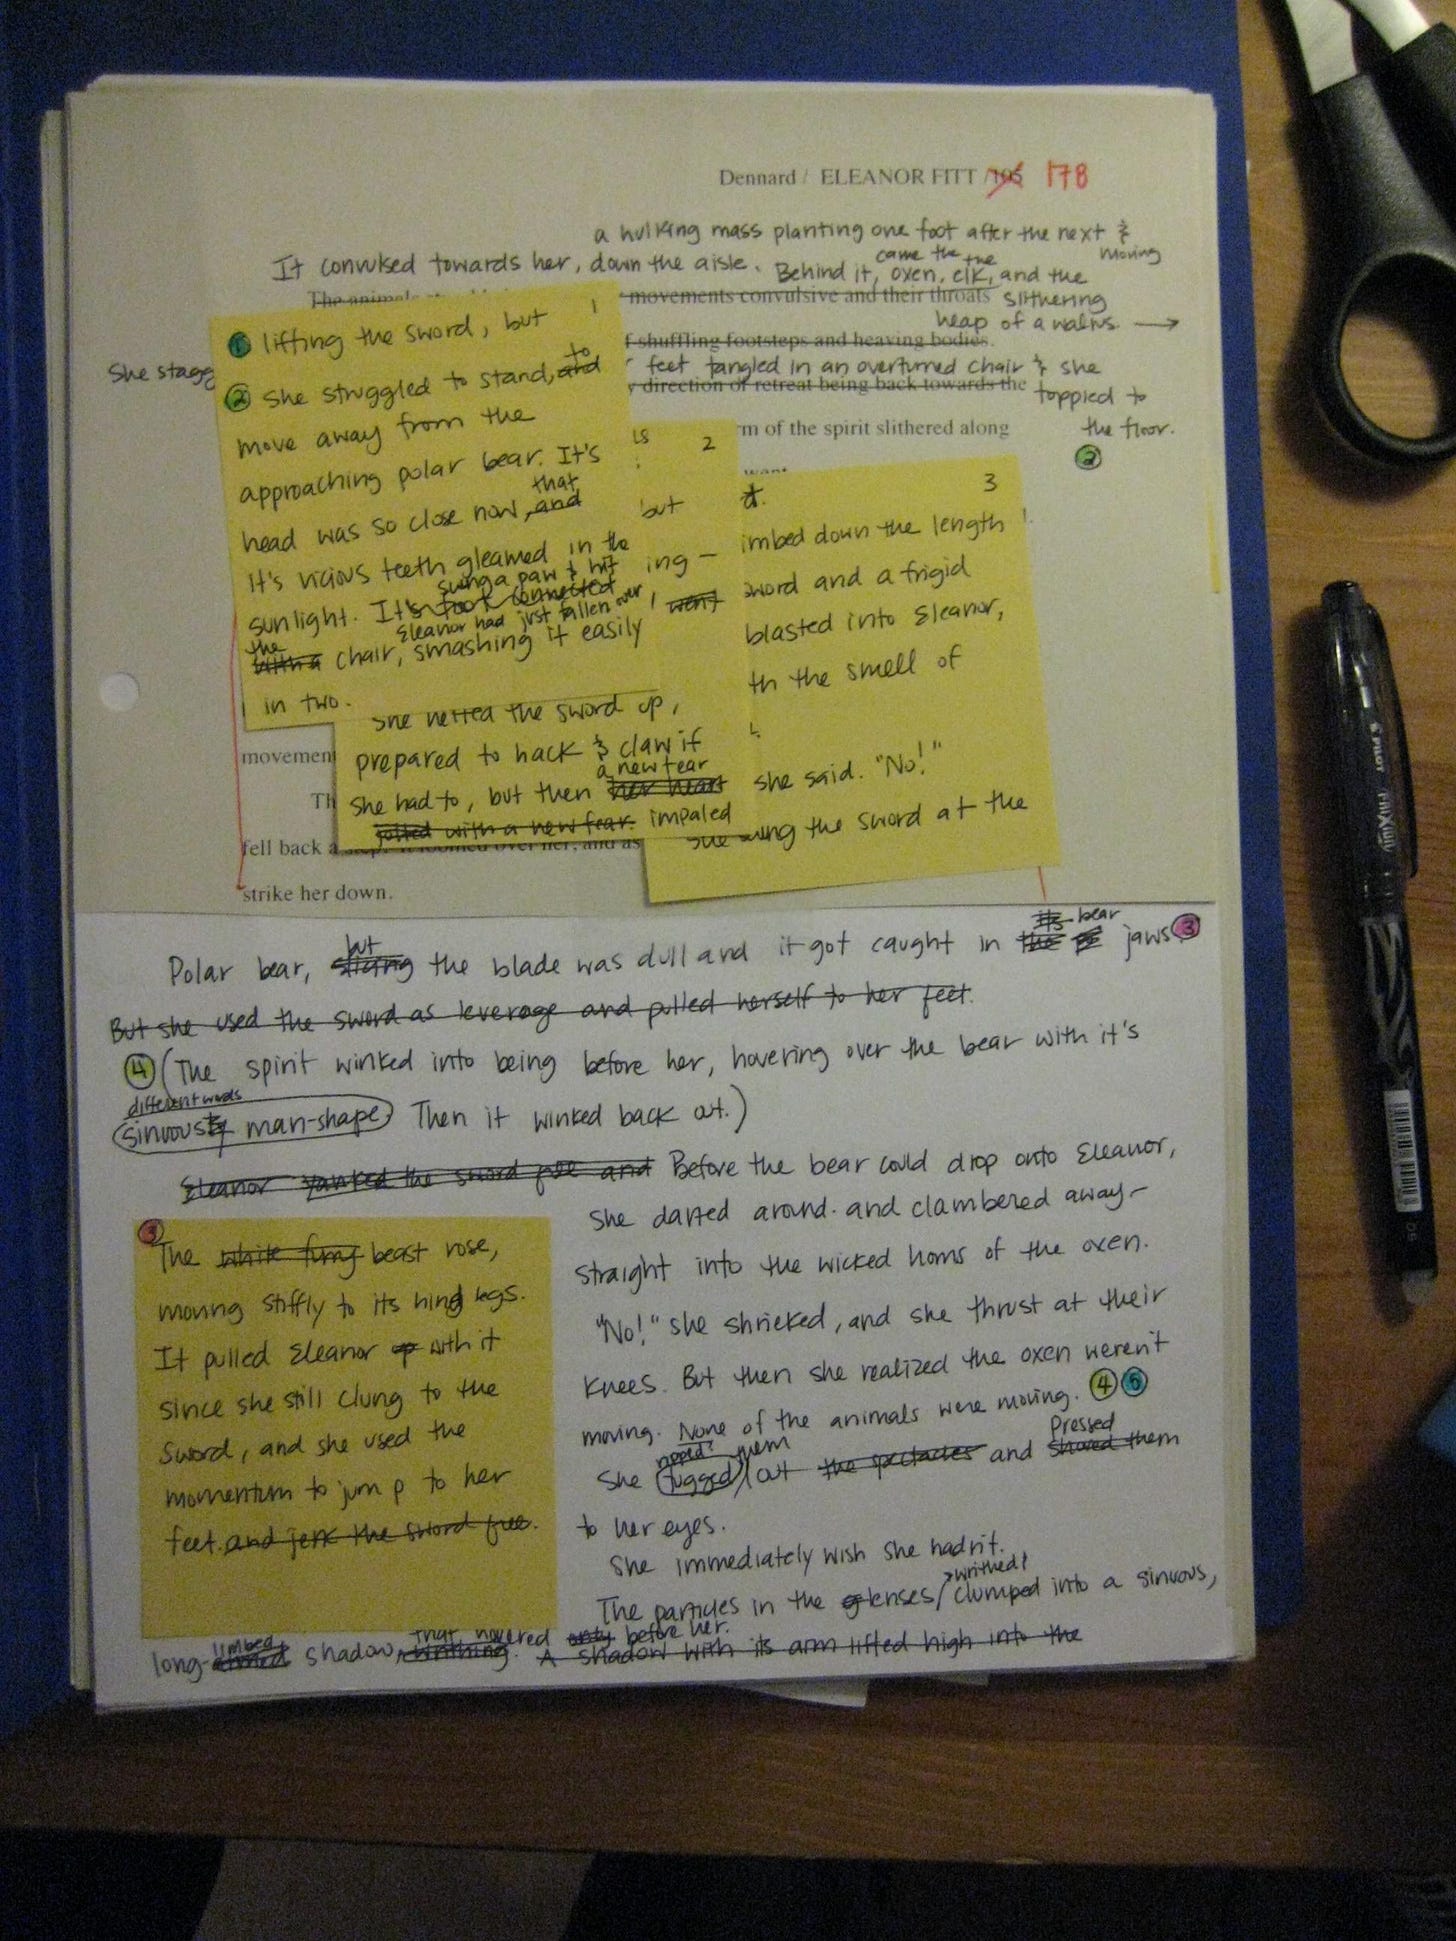 Dennard / ELEANOR FITT /105 178
a hulking mass planting one foot after the next &
It convulsed towards her, down the aisle. Behind it, came the oxen, the elk, and the moving
The animals movements convulsive and their throats slithering
heap of a walrus. →
f shuffling footsteps and heaving bodies.
She stagg feet tangled in an overturned chair & she
y direction of retreat being back towards the toppled to
rm of the spirit slithered along the floor.
2
want
1
1 lifting the sword, but
2 She struggled to stand, and to
move away from the
approaching polar bear. It's
head was so close now, and that
It's vicious teeth gleamed in the
sunlight. It's foot connected swung a paw & hit
with a the chair, Eleanor had just fallen over, smashing it easily
in two.
2
is
but
ing —
went
She hefted the sword up,
prepared to hack & claw if
she had to, but then her heart a new fear
jolted with a new fear. impaled
3
it.
imbed down the length
sword and a frigid
blasted into Eleanor,
th the smell of
she said. "No!"
She swung the sword at the
movement
Th
fell back a step. It loomed over her, and as
strike her down.
Polar bear, slicing but the blade was dull and it got caught in the its bear jaws. 3
But she used the sword as leverage and pulled herself to her feet.
4 (The spirit winked into being before her, hovering over the bear with it's
different words
sinuous man-shape. Then it winked back out.)
Eleanor yanked the sword free and Before the bear could drop onto Eleanor,
she darted around. and clambered away—
straight into the wicked horns of the oxen.
"No!" she shrieked, and she thrust at their
knees. But then she realized the oxen weren't
moving. None of the animals were moving. 4 5
She tugged ripped? them out the spectacles and shoved them Pressed
to her eyes.
She immediately wish she hadn't.
The particles in the lenses / clumped writhed? into a sinuous,
long-armed limbed shadow, writhing. that hovered only before her. A shadow with its arm lifted high into the
3
The white furry beast rose,
moving stiffly to its hind legs.
It pulled Eleanor up with it
since she still clung to the
sword, and she used the
momentum to jump to her
feet. and jerk the sword free.
PILOT FRIXION
05